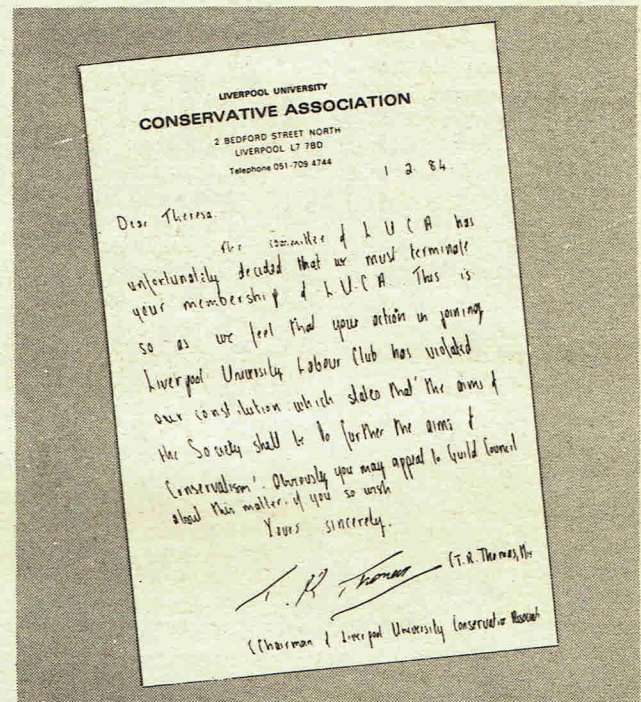 LIVERPOOL UNIVERSITY
CONSERVATIVE ASSOCIATION
2 BEDFORD STREET NORTH
LIVERPOOL L7 7BD
Telephone 051-709 4744
1 2 84.
Dear Theresa.
The committee of L U C A has
unfortunately decided that we must terminate
your membership of L U.C A. This is
so as we feel that your action in joining
Liverpool University Labour Club has violated
our constitution which states that 'the aims of
the Society shall be to further the aims of
Conservatism'. Obviously you may appeal to Guild Council
about this matter, if you so wish
Yours sincerely.
T. R Thomas
(T.R. Thomas,
(Chairman of Liverpool University Conservative